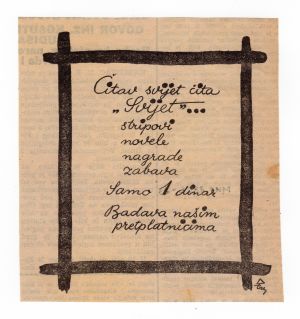 Čitav svijet čita
„Svijet”...
stripovi
novele
nagrade
zabava
Samo 1 dinar
Badava našim
pretplatnicima